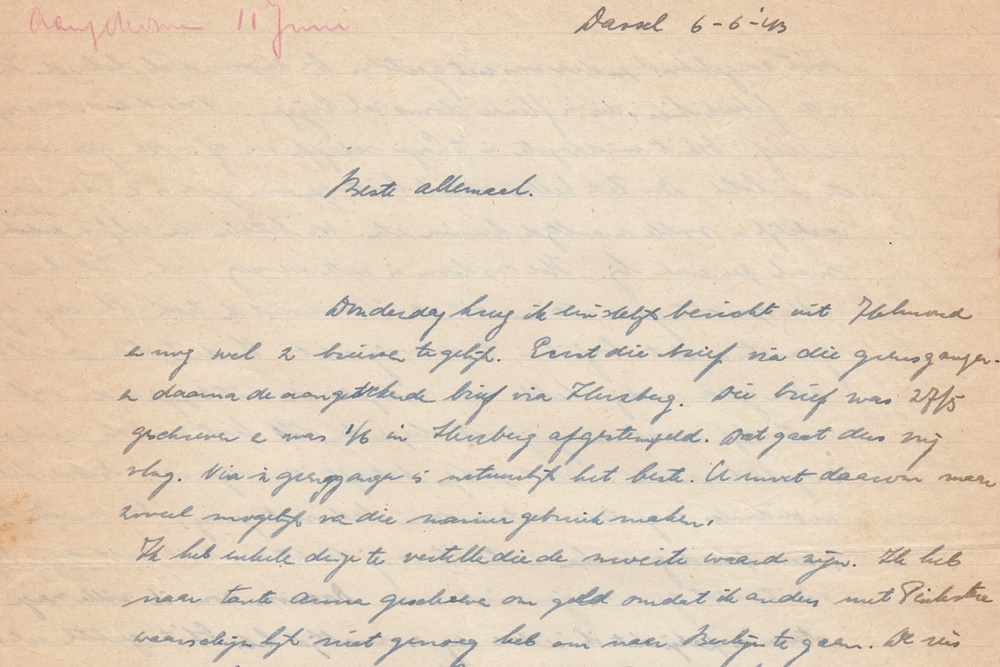 Aangekomen 11 Juni
Dassel 6-6-'43
Beste allemaal.
Donderdag kreeg ik eindelijk bericht uit Helmond
en nog wel 2 brieven tegelijk. Eerst die brief via die grensganger
en daarna de aangetekende brief via Herzberg. Die brief was 27/5
geschreven en was 1/6 in Herzberg afgestempeld. Dat gaat dus vrij
vlug. Via 'n grensganger is natuurlijk het beste. U moet daarom maar
zoveel mogelijk van die manier gebruik maken.
Ik heb enkele dingen te vertellen die de moeite waard zijn. Ik heb
naar tante Anna geschreven om geld omdat ik anders met Pinksteren
waarschijnlijk niet genoeg heb om naar Berlijn te gaan. De reis